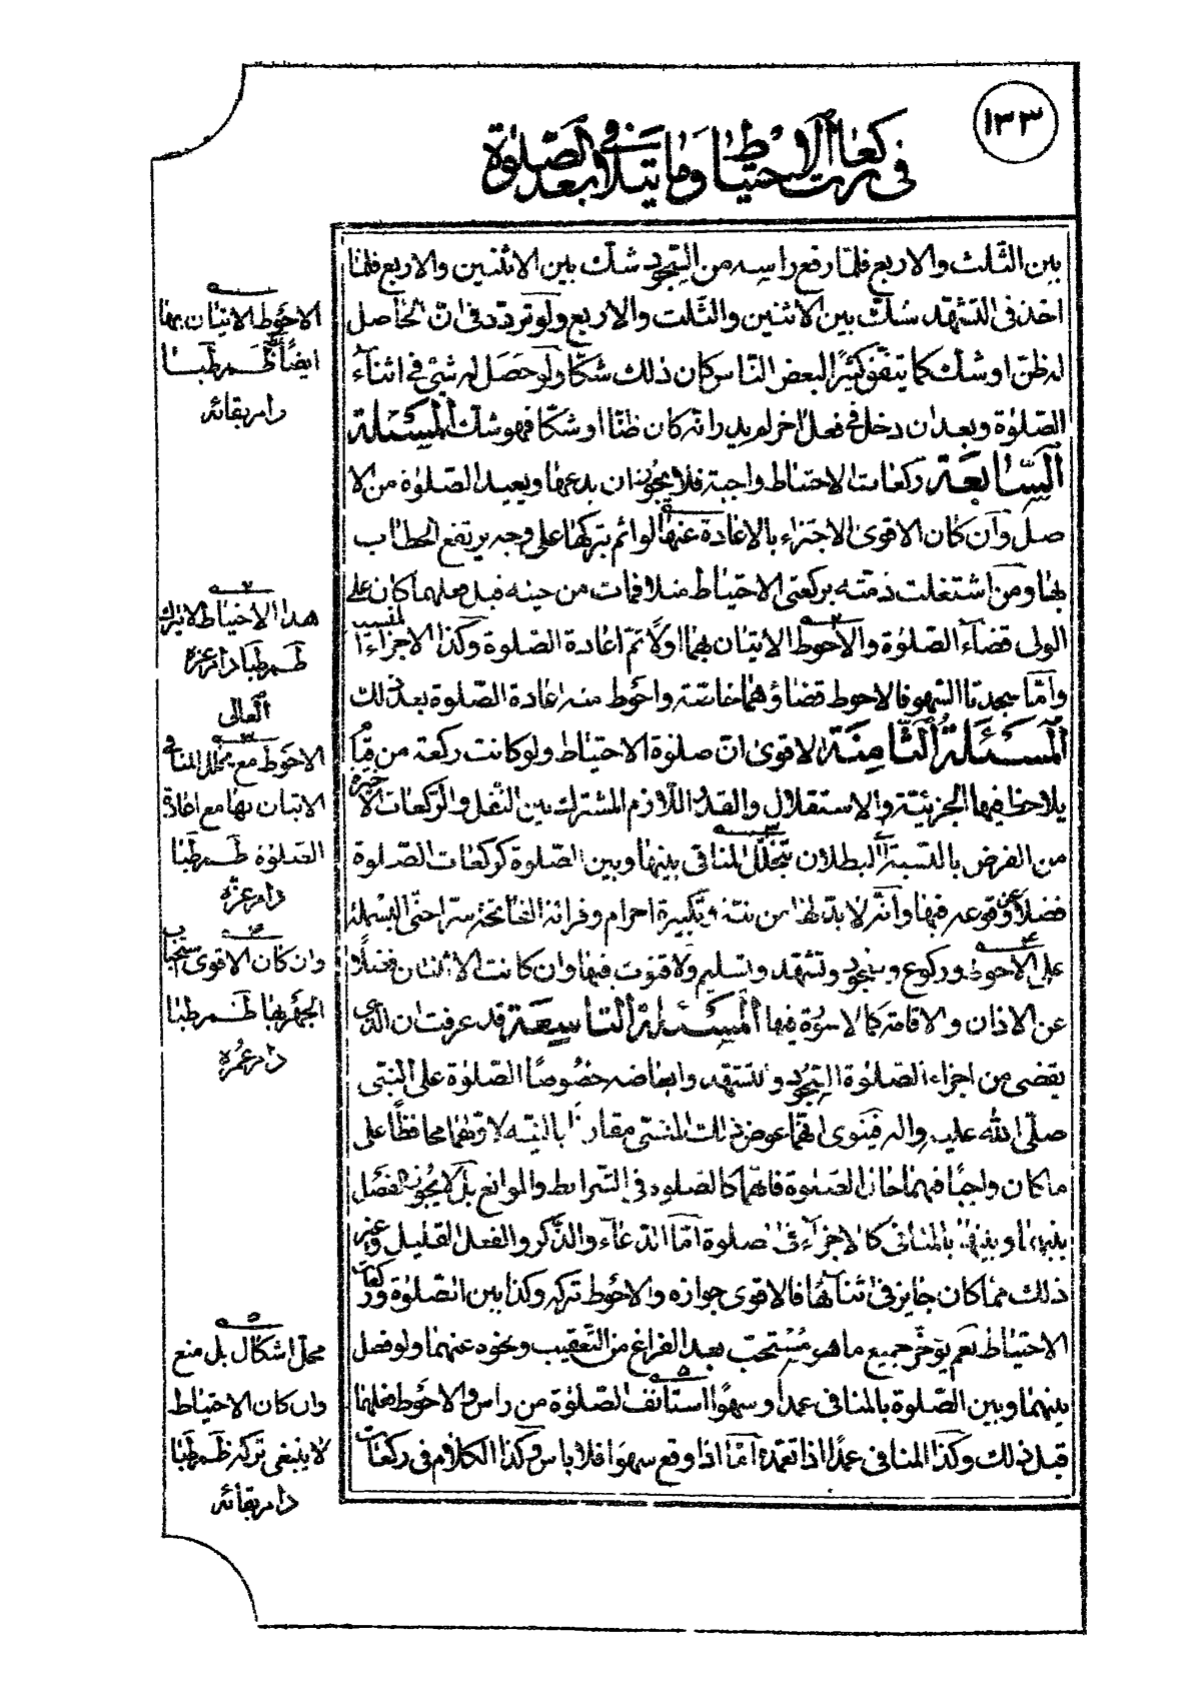 ١٣٣
في ركعات الاحتياط وما يتلافى بعد الصلوة
بين الثلث والاربع فلمّا رفع راسه من السّجود شك بين الاثنين والاربع فلمّا
اخذ فى التشهّد شك بين الاثنين والثّلث والاربع ولو تردّد فى انّ الحاصل
له ظنّ او شك كما يتفق كثيرًا لبعض النّاس كان ذلك شكّا ولو حَصَل له شئ فى اثناء
الصّلوة وبعد ان دخل فى فعل اخر لم يدر انّه كان ظنّا او شكّا فهو شك المسئلة
السّابعة ركعات الاحتياط واجبة فلا يجوز ان يدعها ويعيد الصّلوة من الا
صل وان كان الاقوى الاجتزاء بالاعادة عنها لو اثم بتركها على وجه يرتفع الخطاب
بها ومن اشتغلت ذمّته بركعتى الاحتياط مثلا فمات من حينه قبل فعلهما كان على
الولى قضاء الصّلوة والاحوط الاتيان بهما اوّلا ثمّ اعادة الصّلوة وكذا الاجزاء المنسية
وامّا سجدتا السّهو فالاحوط قضاؤهما خاصّة واحوط منه اعادة الصّلوة بعد ذلك
المسئلة الثّامنة الاقوى انّ صلوة الاحتياط ولو كانت ركعة من قيام
يلاحظ فيها الجزئيّة والاستقلال والقدر اللّازم المشترك بين النّفل والرّكعات الاخيرة
من الفرض بالنسبة الى البطلان بتخلّل المنافى بينها وبين الصّلوة كركعات الصّلوة
فضلا عن وقوعه فيها وانّه لا بدّ لها من نيّة وتكبيرة احرام وقرائة الفاتحة سرّا حتّى البسملة
على الاحوط وركوع وسجود وتشهّد وتسليم ولا قنوت فيها وان كانت الاثنتان فضلًا
عن الاذان والاقامة كما لا سورة فيها المسئلة التّاسعة قد عرفت ان الذى
يقضى من اجزاء الصّلوة السّجود والتشهّد وابعاضه خصوصًا الصّلوة على النّبى
صلّى الله عليه واله فينوى انّهما عوض ذلك المنسىّ مقارنًا بالنيّة لاوّلهما محافظًا على
ما كان واجبًا فيهما حال الصّلوة فانّهما كالصّلوة فى الشّرايط والموانع بل لا يجوز الفصل
بينهما وبينها بالمنافى كالاجزاء فى الصلوة امّا الدّعاء والذّكر والفعل القليل وغير
ذلك ممّا كان جايز فى اثنائها فالاقوى جوازه والاحوط تركه وكذا بين الصّلوة وركعات
الاحتياط نعم يؤخّر جميع ما هو مستحب بعد الفراغ من التّعقيب ونحوه عنهما ولو فصل
بينهما وبين الصّلوة بالمنافى عمدا وسهوًا استانف الصّلوة من راس والاحوط فعلهما
قبل ذلك وكذا المنافى عمدًا اذا تعمّده امّا اذا وقع سهوا فلا باس وكذا الكلام فى ركعات
الاحوط الاتيان بها
ايضًا ظم طبا
دام بقائه
٢
هذا الاحتياط لا يترك
ظم طبا دام عزه
العالى
٣
الاحوط مع تخلل المنافى
الاتيان بها مع اعادة
الصلوة ظم طبا
دام عزّه
٤
وان كان الاقوى استحباب
الجهر بها ظم طبا
دام عزه
٥
محل اشكال بل منع
وان كان الاحتياط
لا ينبغى تركه ظم طبا
دام بقائه